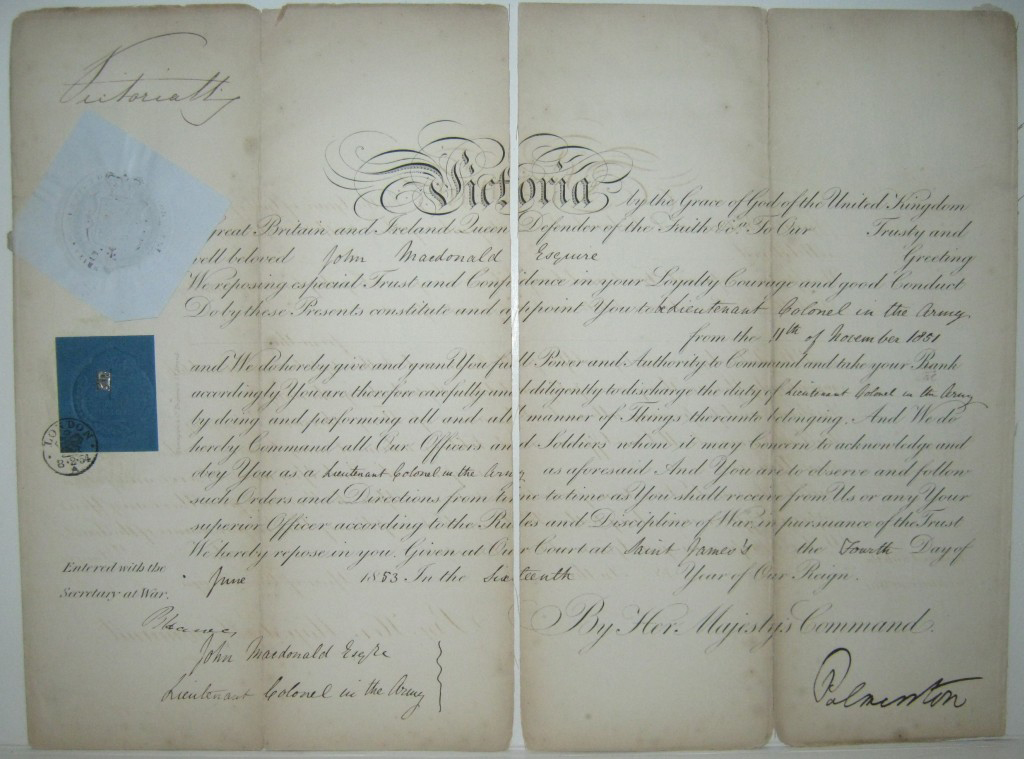 Victoria R
Victoria by the Grace of God of the United Kingdom
Great Britain and Ireland Queen Defender of the Faith &c.a To Our Trusty and
well beloved John Macdonald Esquire Greeting
We reposing especial Trust and Confidence in your Loyalty Courage and good Conduct
Do by these Presents constitute and appoint You to be Lieutenant Colonel in the Army
from the 11th of November 1851
and We do hereby give and grant You full Power and Authority to Command and take your Rank
accordingly You are therefore carefully and diligently to discharge the duty of Lieutenant Colonel in the Army
by doing and performing all and all manner of Things thereunto belonging. And We do
hereby Command all Our Officers and Soldiers whom it may Concern to acknowledge and
obey You as a Lieutenant Colonel in the Army as aforesaid And You are to observe and follow
such Orders and Directions from time to time as You shall receive from Us or any Your
superior Officer according to the Rules and Discipline of War, in pursuance of the Trust
We hereby repose in you. Given at Our Court at Saint James's the Fourth Day of
June 1853 In the Sixteenth Year of Our Reign.
By Her Majesty's Command.
Palmerston
LONDON
Entered with the
Secretary at War.
John Macdonald Esqre
Lieutenant Colonel in the Army